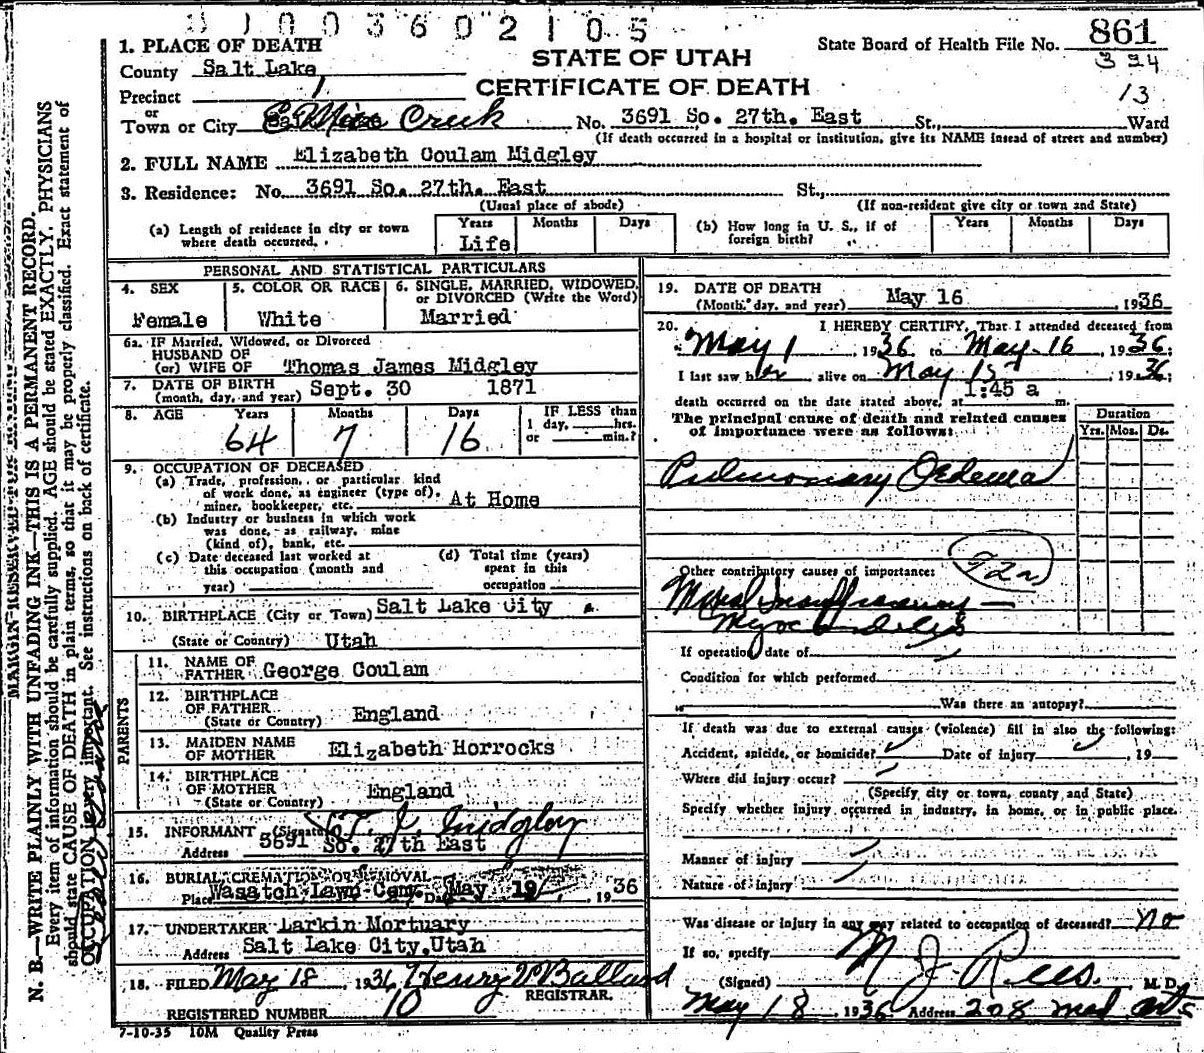 1003602105
861
324
13
STATE OF UTAH
CERTIFICATE OF DEATH
State Board of Health File No.
1. PLACE OF DEATH
County Salt Lake
Precinct 1
or
Town or City E Mill Creek No. 3691 So. 27th. East St., Ward
(If death occurred in a hospital or institution, give its NAME instead of street and number)
2. FULL NAME Elizabeth Coulam Midgley
3. Residence: No. 3691 So. 27th. East St.,
(Usual place of abode) (If non-resident give city or town and State)
(a) Length of residence in city or town where death occurred. Years Life Months Days
(b) How long in U. S., if of foreign birth? Years Months Days
PERSONAL AND STATISTICAL PARTICULARS
4. SEX Female
5. COLOR OR RACE White
6. SINGLE, MARRIED, WIDOWED, or DIVORCED (Write the Word) Married
6a. IF Married, Widowed, or Divorced
HUSBAND OF
(or) WIFE OF Thomas James Midgley
7. DATE OF BIRTH
(month, day, and year) Sept. 30 1871
8. AGE Years 64 Months 7 Days 16
IF LESS than
1 day, hrs.
or min.?
9. OCCUPATION OF DECEASED
(a) Trade, profession, or particular kind
of work done, as engineer (type of),
miner, bookkeeper, etc. At Home
(b) Industry or business in which work
was done, as railway, mine
(kind of), bank, etc.
(c) Date deceased last worked at
this occupation (month and
year)
(d) Total time (years)
spent in this
occupation
10. BIRTHPLACE (City or Town) Salt Lake City
(State or Country) Utah
PARENTS
11. NAME OF
FATHER George Coulam
12. BIRTHPLACE
OF FATHER
(State or Country) England
13. MAIDEN NAME
OF MOTHER Elizabeth Horrocks
14. BIRTHPLACE
OF MOTHER
(State or Country) England
15. INFORMANT (Signature) T. J. Midgley
Address 3691 So. 27th East
16. BURIAL, CREMATION OR REMOVAL
Place Wasatch Lawn Cem. Date May 19, 1936
17. UNDERTAKER Larkin Mortuary
Address Salt Lake City, Utah
18. FILED May 18, 1936 Henry Ballard
REGISTRAR.
REGISTERED NUMBER 10
7-10-35 10M Quality Press
19. DATE OF DEATH
(Month, day, and year) May 16, 1936
20. I HEREBY CERTIFY, That I attended deceased from
May 1, 1936 to May 16, 1936;
I last saw her alive on May 15, 1936;
death occurred on the date stated above, at 1:45 a m.
The principal cause of death and related causes
of importance were as follows:
Duration
Yrs. Mos. Ds.
Pulmonary Oedema
92a
Other contributory causes of importance:
Mitral Insufficiency
Myocarditis
If operation, date of
Condition for which performed
Was there an autopsy?
If death was due to external causes (violence) fill in also the following:
Accident, suicide, or homicide? Date of injury , 19
Where did injury occur?
(Specify city or town, county, and State)
Specify whether injury occurred in industry, in home, or in public place.
Manner of injury
Nature of injury
Was disease or injury in any way related to occupation of deceased? no
If so, specify
(Signed) M J Rees M. D.
May 18, 1936 Address 208 Med arts
MARGIN RESERVED FOR BINDING
N. B.—WRITE PLAINLY WITH UNFADING INK—THIS IS A PERMANENT RECORD.
Every item of information should be carefully supplied. AGE should be stated EXACTLY. PHYSICIANS
should state CAUSE OF DEATH in plain terms, so that it may be properly classified. Exact statement of
OCCUPATION is very important. See instructions on back of certificate.